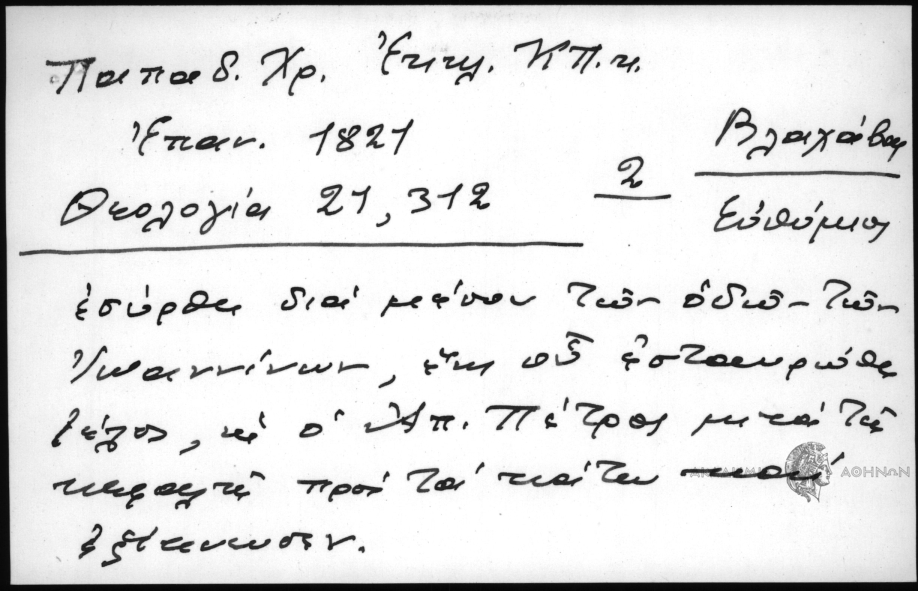 Παπαδ. Χρ. Ἐκκλ. ΚΠ. κ.
Ἐπαν. 1821
Θεολογία 21, 312
2
Βλαχάβας
Εὐθύμιος
ἐσύρθη διά μέσου τῶν ὁδῶν τῶν
Ἰωαννίνων, ἕως οὗ ἐσταυρώθη
τέλος, ὡς ὁ Ἀπ. Πέτρος μετά τῆς
κεφαλῆς πρός τά κάτω
ἐξέπνευσεν.
ΑΚΑΔΗΜΙΑ ΑΘΗΝΩΝ